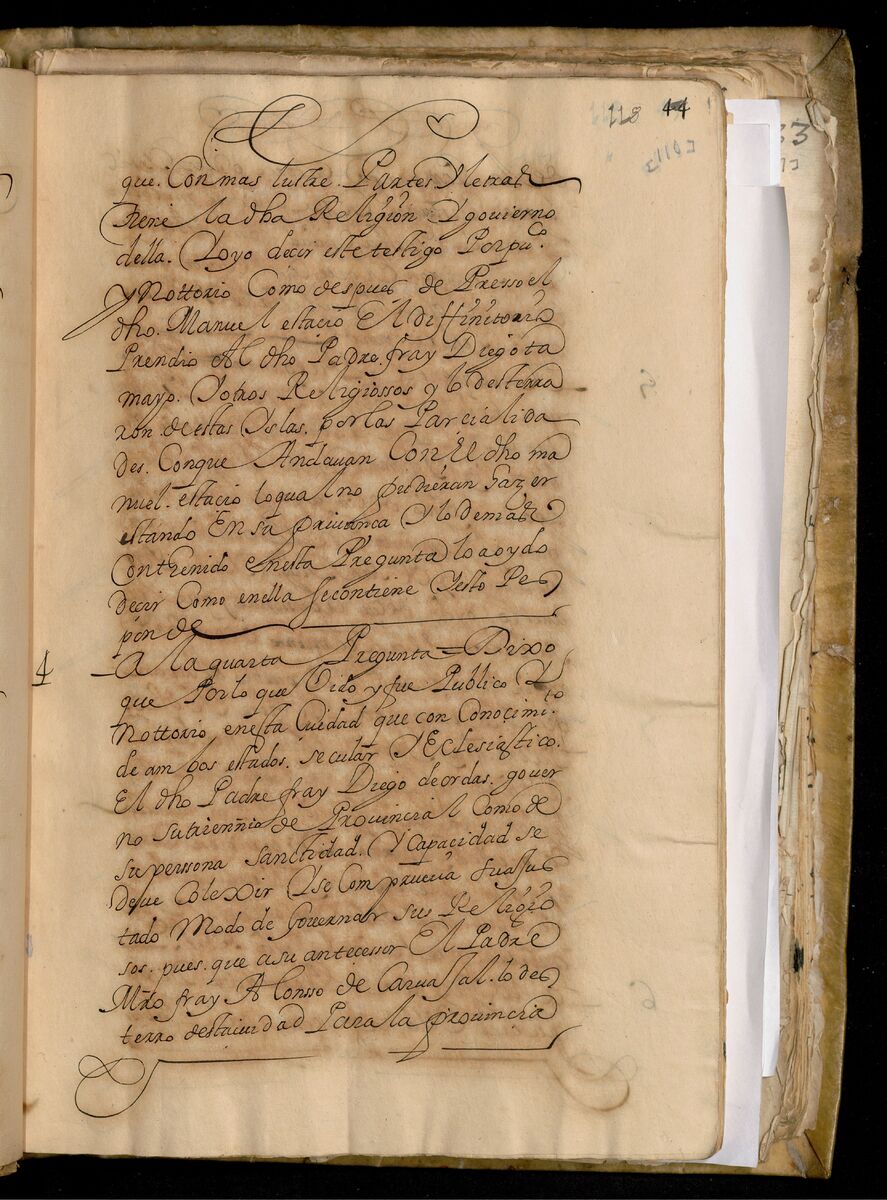 118 44
que. Con mas lustre. Partes y letras
tiene la dha Religion y govierno
della. Y oyo decir este testigo Por puco.
y Nottorio Como despues de Presso el
dho. Manuel estacio El diffinitorio
Prendio Al dho Padre. fray Diego ta
mayo. Y otros Religiossos y lo desterra
ron. de estas Yslas. por las Parciali da
des. Con que Andauan Con el dho ma
nuel. estacio lo qual no pudieran hazer
estando En su priuança Y lo demas
Conthenido en esta Pregunta lo a oydo
decir Como en ella se contiene Y esto Res
pon de
4 A la quarta Pregunta = Dixo
que Por lo que Vido y fue Publico Y
nottorio en esta Ciudad que con Conocimito
de am bos estados. secular Y Eclesiastico.
El dho Padre fray Diego de ordas. gouer
no su triennio de Prouincial Como de
su perssona sanctidad. Y Capacidad se
deue Colexir Y se Comprueua fue ajus
tado Modo de Governar sus Religio
sos. pues. que a su antecessor El Padre
Mro fray Alonsso de Carauajal. lo des
terro desta ciudad Para la prouincia